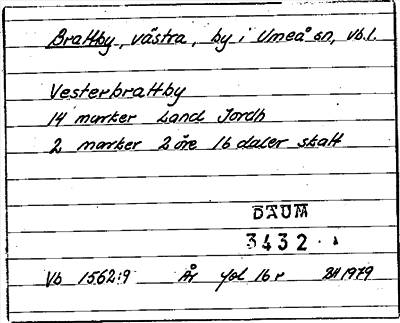 Brattby, västra, by i Umeå sn, Vb.l.
Vesterbrattby
14 marker Land Jordh
2 marker 2 öre 16 daler skatt
DAUM
3432
Vb 1562:9 År fol 16r BH 1979